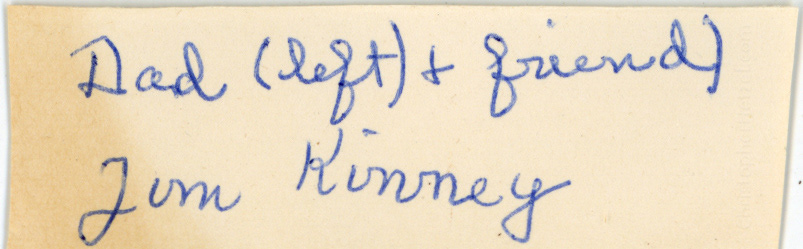 Dad (left) + friend)
Jim Kinney